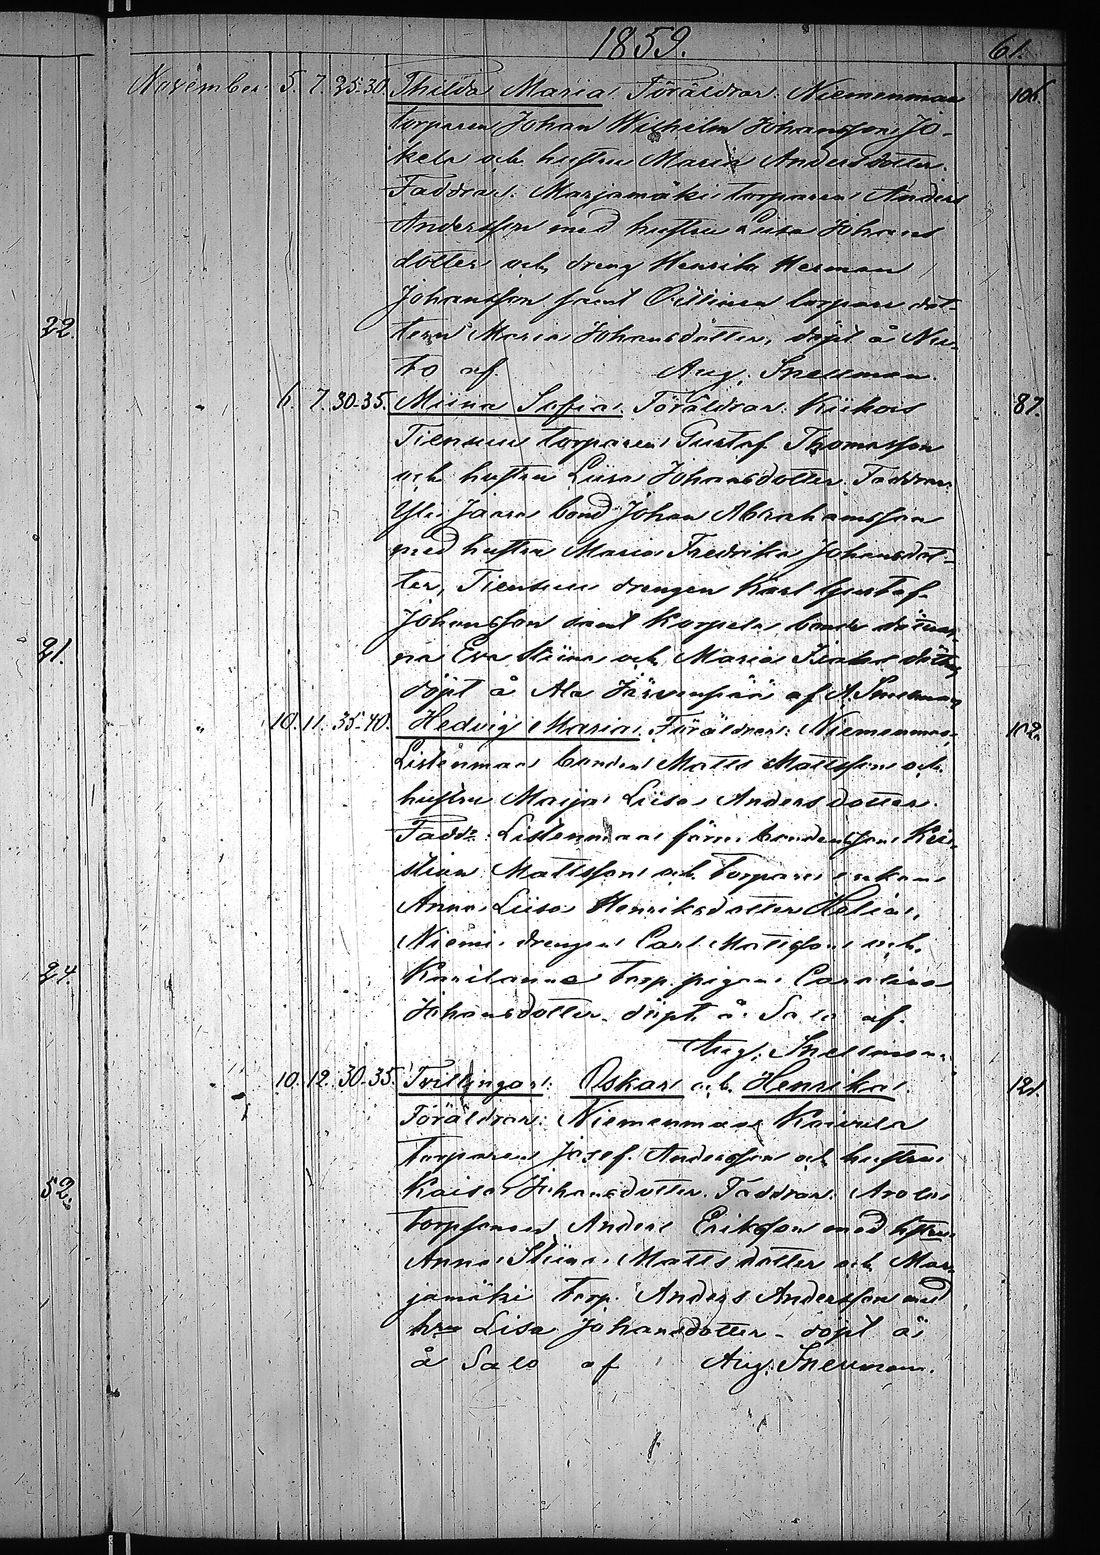 1859. 61.
November. 5. 7. 25-30. Thilda Maria. Föräldrar: Niemenmaa 106.
torparen Johan Wilhelm Johansson Jo-
kela och hustru Maria Andersdotter.
Faddrar: Marjamäki torparen Anders
Andersson med hustru Lisa Johans
dotter och dreng Henrik Herman
22.
Johansson samt torpare dot-
tern Maria Johansdotter, döpt å
to af Aug. Snellman.
" 6. 7. 30-35. Miina Sofia. Föräldrar: Kiikois 87.
Tiensuu torparen Gustaf Thomasson
och hustru Liisa Johansdotter. Faddrar:
Yli Jaara bond Johan Abrahamsson
med hustru Maria Fredrika Johansdot-
ter, Tiensuu drengen Karl Gustaf
Johansson samt Korpela bonde döttrar-
21.
na Eva Stiina och Maria
döpt å Ala Järvenpää af A. Snellman
" 10. 11. 35-40. Hedvig Maria. Föräldrar: Niemenmaa 102.
Listenmaa bonden Matts Mattsson och
hustru Maja Liisa Andersdotter.
Faddr: Listenmaa förre bondens son Kri-
stian Mattsson och torpare enkan
Anna Liisa Henriksdotter
Niemi drengen Carl Mattsson och
24.
torp. pigan Carolina
Johansdotter. döpt å Salo af
Aug. Snellman.
" 10. 12. 30-35. Tvillingar: Oskar och Henrika. 121.
Föräldrar: Niemenmaa Koivula
torparen Josef Andersson och hustru
52.
Kaisa Johansdotter. Faddrar: Arola
torpsonen Anders Eriksson med hstru
Anna Stiina Mattsdotter och Mar-
jamäki torp. Anders Andersson med
hru Lisa Johansdotter - döpt ä
å Salo af Aug. Snellman.